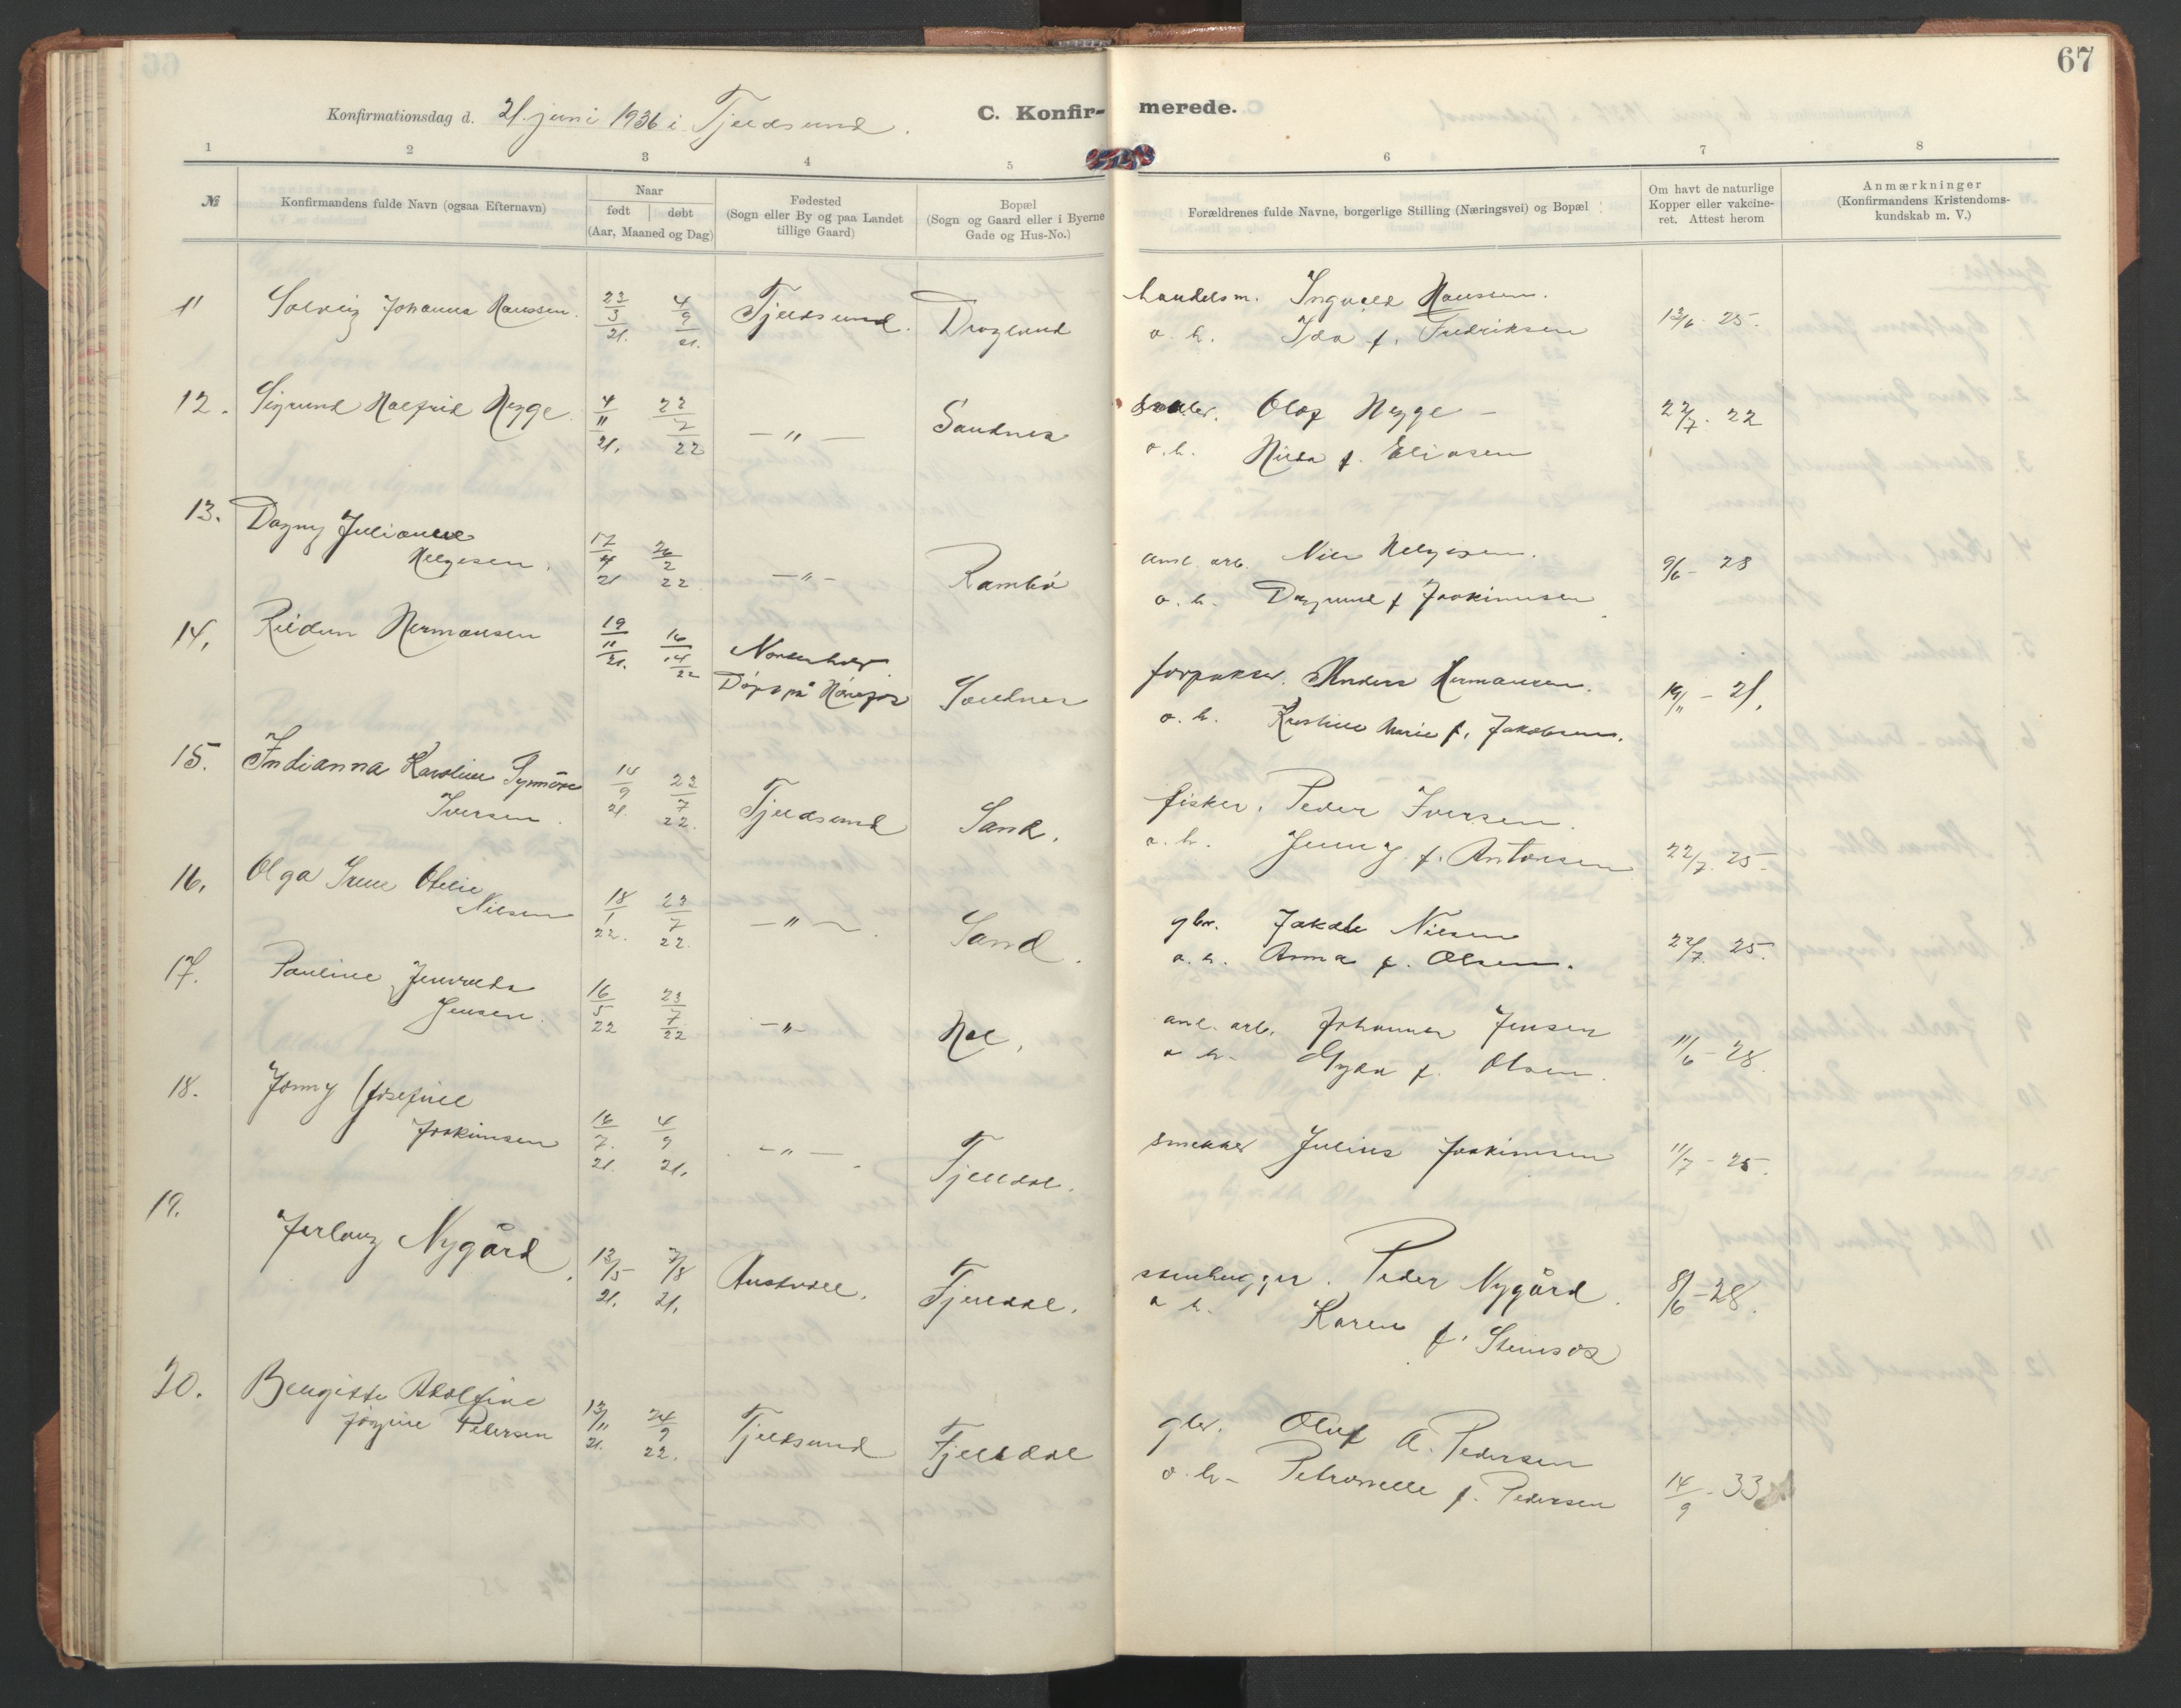 67
Konfirmationsdag d. 21. juni 1936 i Tjeldsund.
C. Konfirmerede.
1 2 3 4 5 6 7 8
№
Konfirmandens fulde Navn (ogsaa Efternavn)
Naar
født | døbt
(Aar, Maaned og Dag)
Fødested
(Sogn eller By og paa Landet
tillige Gaard)
Bopæl
(Sogn og Gaard eller i Byerne
Gade og Hus-No.)
Forældrenes fulde Navne, borgerlige Stilling (Næringsvei) og Bopæl
Om havt de naturlige
Kopper eller vakcine-
ret. Attest herom
Anmærkninger
(Konfirmandens Kristendoms-
kundskab m. V.)
11 Solveig Johanna Hanssen. 23/3 21. 4/9 21. Tjeldsund. Dragland
handelsm. Ingvald Hanssen.
o. h. Ida f. Fredriksen 13/6 25.
12. Sigrund Halfrid Hegge 4/11 21. 23/7 22 — " — Sandnes
Olaf Hegge - 22/7. 22
o. h. Hilda f. Eliasen
13. Dagny Julianne
Helgesen. 17/4 21 26/2 22 — " — Rambö
anl. arb. Nils Helgesen. 9/6 - 28
o. h. Dagrund f Joakimsen
14. Reidun Hermansen 19/11 21. 16/14 22
Döpt på
Sandnes
Anders Hermansen. 19/11 - 21.
o. h. Kristine Marie f. Jakobsen.
15. Indianna Karoline Synnöve
Iversen. 14/9 21. 23/7 22. Tjeldsund Sand.
fisker. Peder Iversen.
o. h. Jenny f. Antonsen 22/7. 25.
16. Olga Irene Otelie
Nilsen 18/1 22. 23/7 22. — " — Sand.
gbr. Jakob Nilsen 22/7. 25.
o. h. Anna f. Olsen.
17. Pauline
Jensen. 16/5 22 23/7 22 — " — Hol.
anl. arb. Johannes Jensen
o h. Gyda f. Olsen. 11/6 - 28
18. Jonny Josefine
Joakimsen 16/7. 21. 4/9 21. — " — Fjelldal.
snekker Julius Joakimsen 11/7 - 25.
19.
Jerlaug Nygård. 13/5 21. 7/8 21. Fjelldal.
Peder Nygård. 8/6 - 28.
o h. Karen f. Steinsös
20. Bergitte Adolfine
Jörgine Pedersen 13/11 21. 24/9 22. Tjeldsund Fjelldal
gbr. Oluf A. Pedersen
o. h - Petronelle f. Pedersen 14/9 - 33